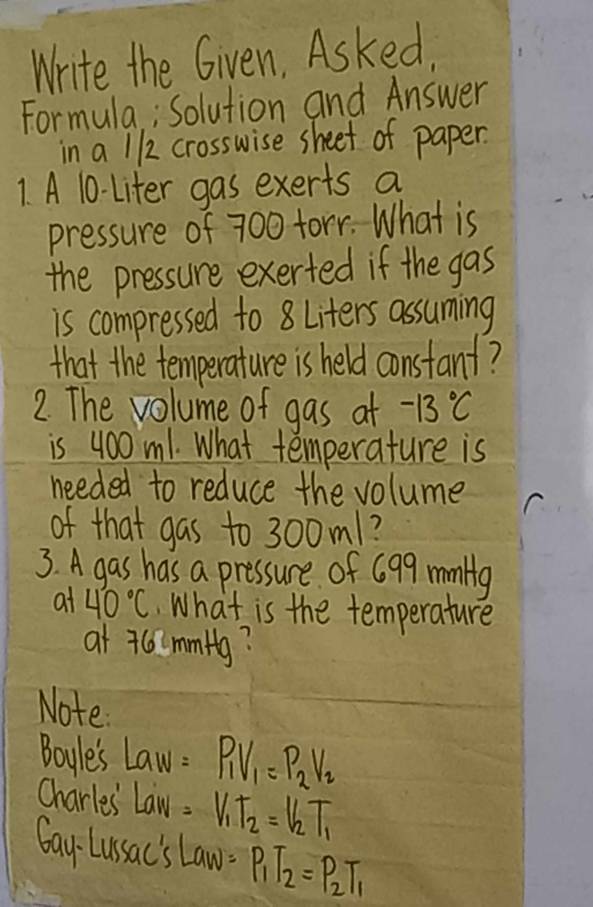 Write the Given, Asked,
Formula ; Solution and Answer
in a 1/2 crosswise sheet of paper.
1. A 10-Liter gas exerts a
pressure of 700 torr. What is
the pressure exerted if the gas
is compressed to 8 Liters assuming
that the temperature is held constant?
2. The volume of gas at -13 °C
is 400 ml. What temperature is
needed to reduce the volume
of that gas to 300 ml?
3. A gas has a pressure of 699 mmHg
at 40 °C. What is the temperature
at mmHg?
Note:
Boyle's Law = P₁V₁ = P₂V₂
Charles' Law = V₁T₂ = V₂T₁
Gay-Lussac's Law = P₁T₂ = P₂T₁